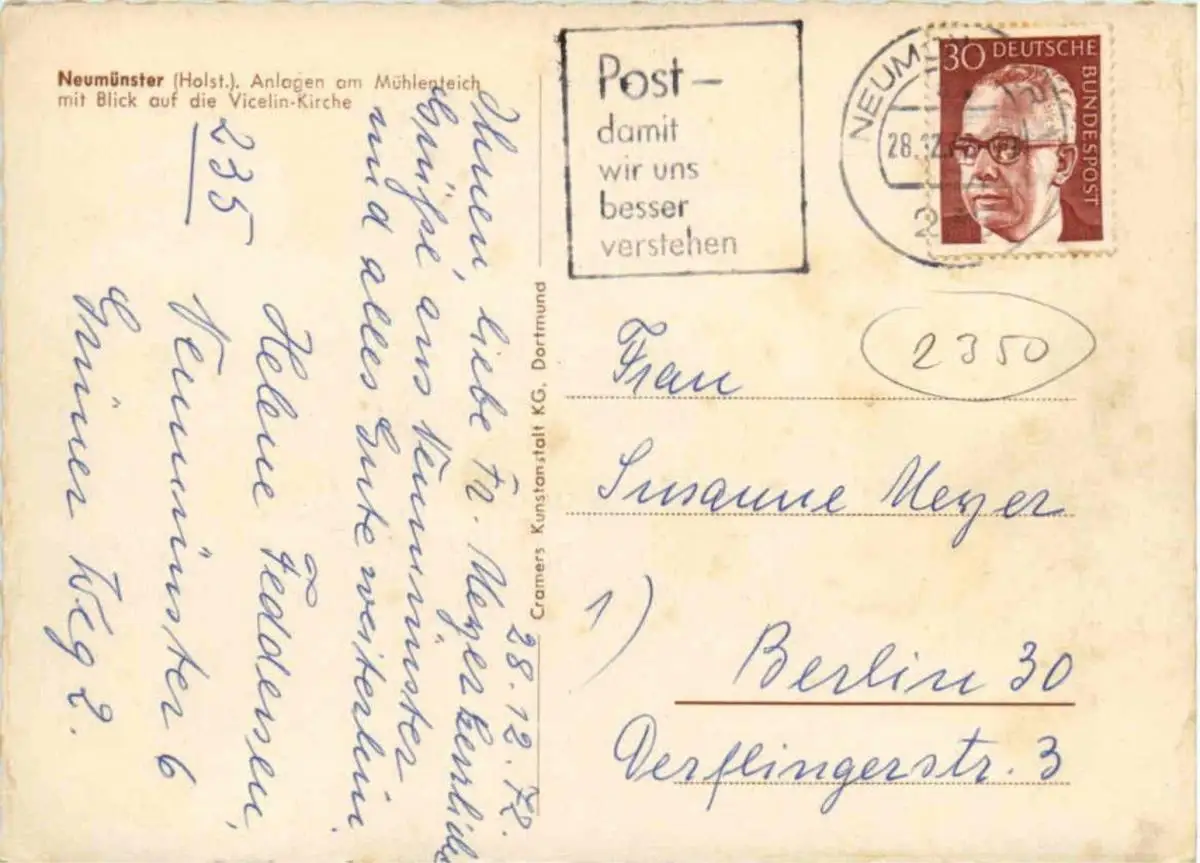 Neumünster (Holst.). Anlagen am Mühlenteich
mit Blick auf die Vicelin-Kirche
Post –
damit
wir uns
besser
verstehen
NEUM
28.12.
2
30 DEUTSCHE
BUNDESPOST
2350
28.12.72.
Ihnen, liebe Fr. Meyer herzliche
Grüße aus Neumünster
und alles Gute weiterhin.
Helene Feddersen,
235 Neumünster 6
Grüner Weg 2.
Cramers Kunstanstalt KG, Dortmund
Frau
Susanne Meyer
1)
Berlin 30
Derflingerstr. 3